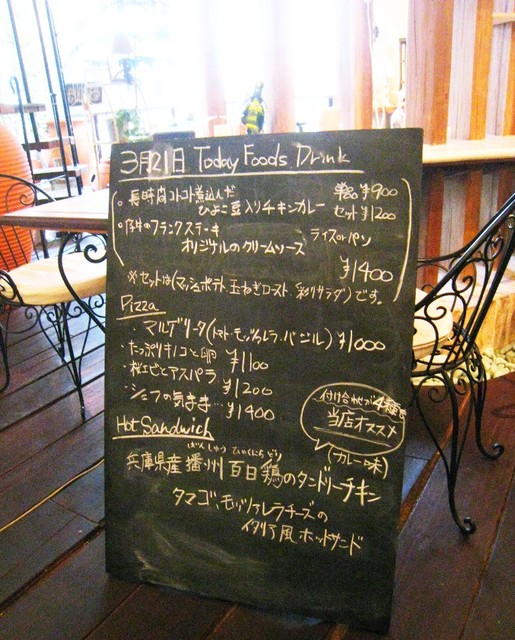 3月21日 Today Foods Drink
。長時間コトコト煮込んだ 単品 ¥900
ひよこ豆入りチキンカレー セット ¥1200
牛のフランクステーキ ライスorパン
オリジナルのクリームソース
¥1400
※セットは(マッシュポテト 玉ねぎロースト、彩りサラダ)です。
Pizza
・マルゲリータ(トマト・モッツァレラ・バジル) ¥1000
・たっぷりキノコと卵 ¥1100
・桜エビとアスパラ ¥1200
・シェフの気まま… ¥1400
付け合せが4種
当店オススメ
Hot Sandwich
(カレー味)
ばんしゅう ひゃくにちどり
兵庫県産播州百日鶏のタンドリーチキン
タマゴ、モッツァレラチーズの
イタリア風ホットサンド